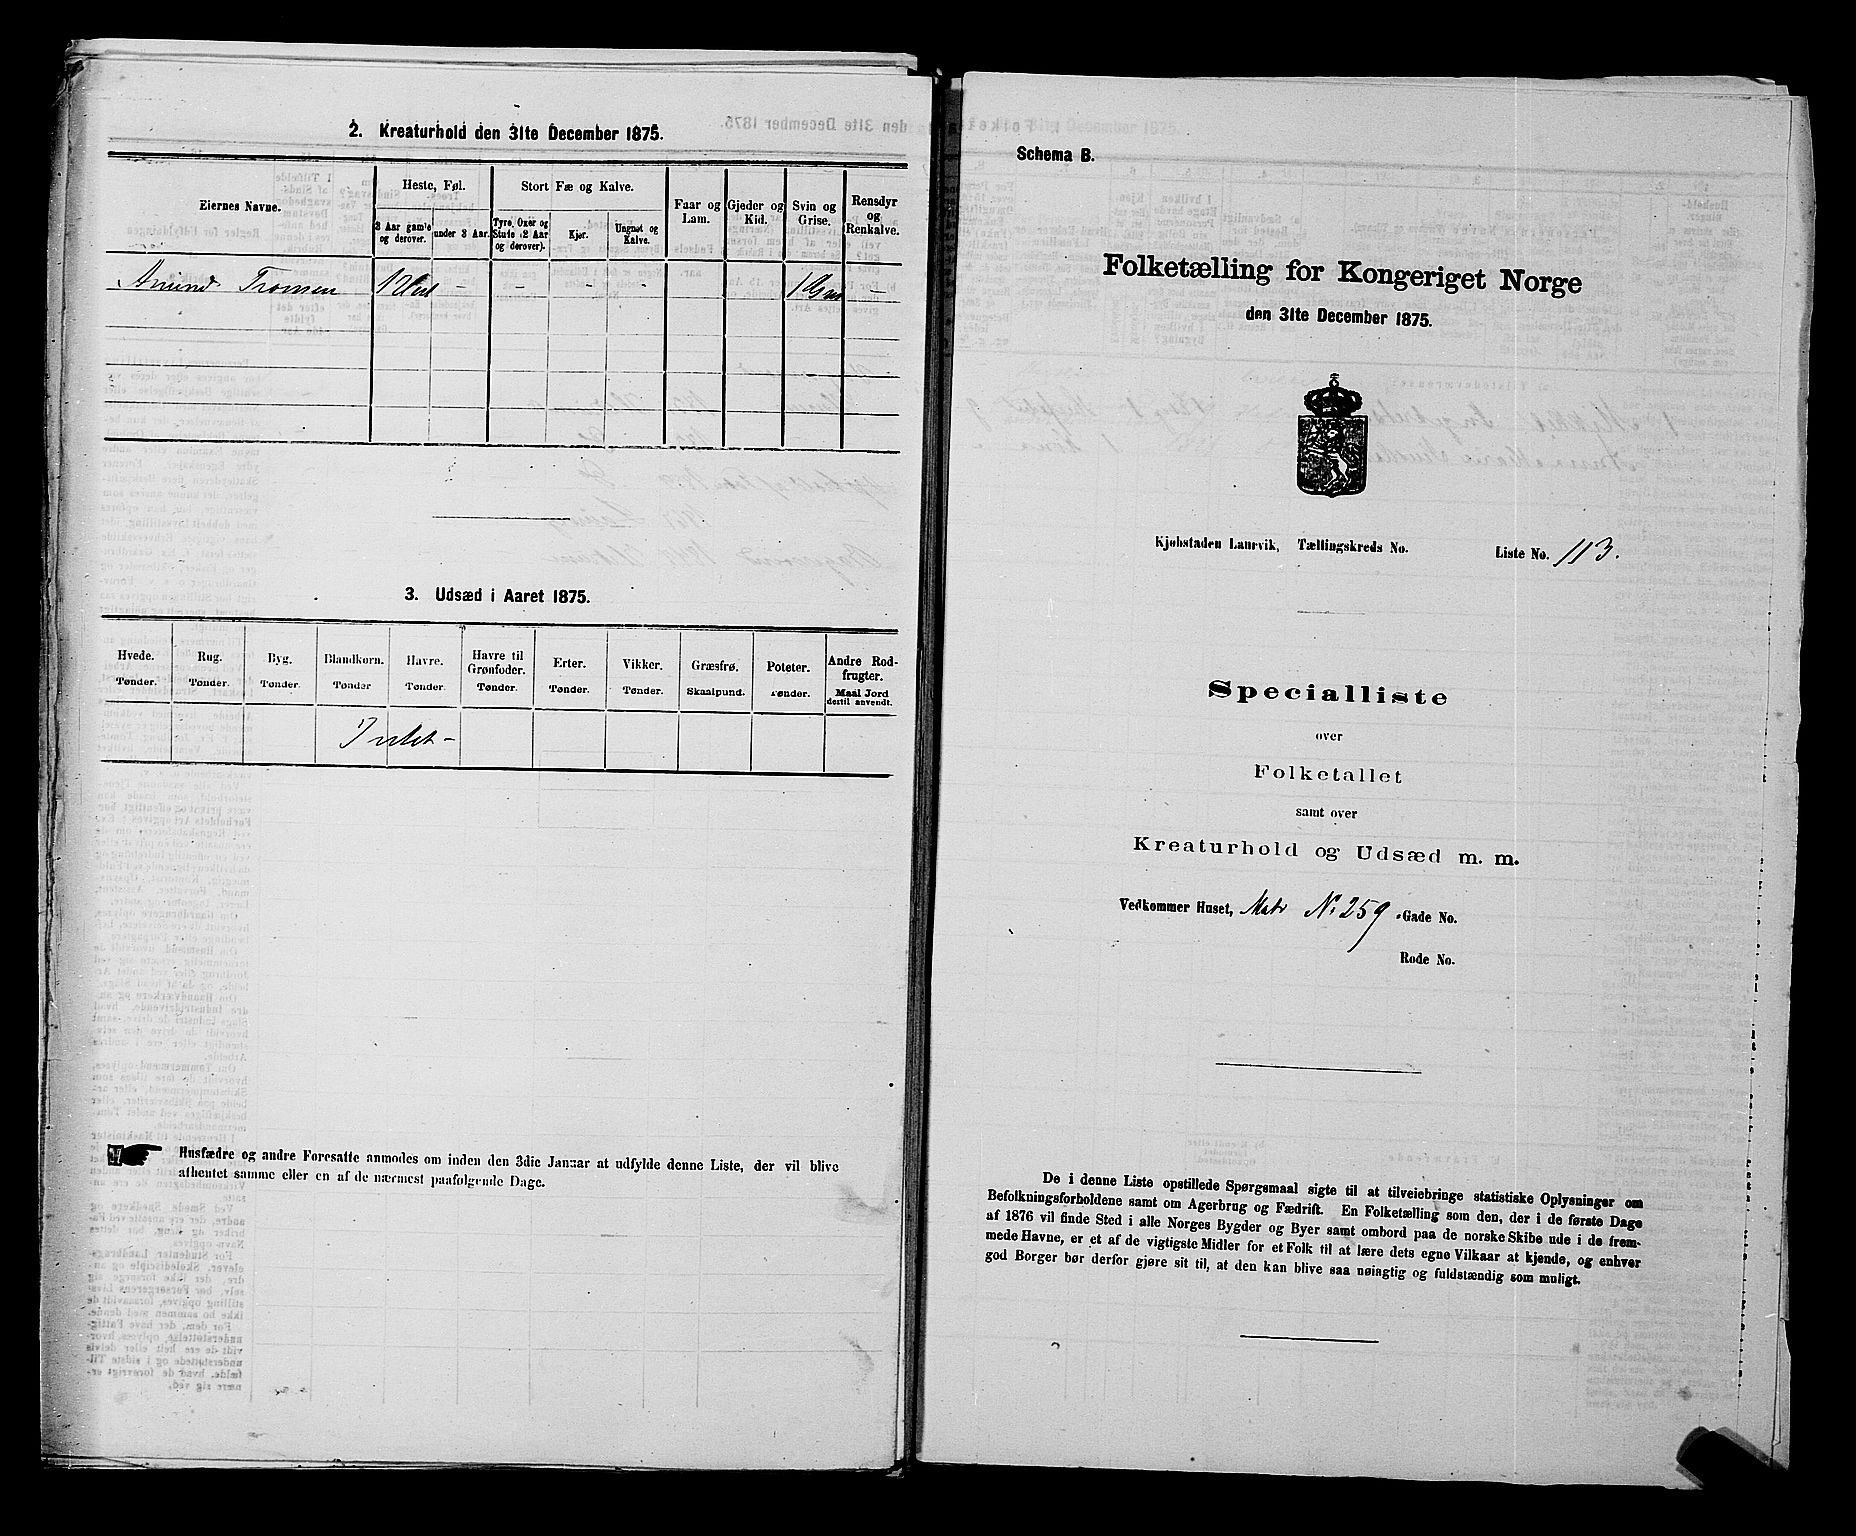 2. Kreaturhold den 31te December 1875.
Eiernes Navne.
Heste, Føl.
3 Aar gamle og derover.
under 3 Aar.
Stort Fæ og Kalve.
Tyre, Oxer og Stude (2 Aar og derover).
Kjør.
Ungnøt og Kalve.
Faar og Lam.
Gjeder og Kid.
Svin og Grise.
Rensdyr og Renkalve.
Amund Tromsen 1 - - - - 1 -
3. Udsæd i Aaret 1875.
Hvede. Tønder.
Rug. Tønder.
Byg. Tønder.
Blandkorn. Tønder
Havre. Tønder.
Havre til Grønfoder. Tønder.
Erter. Tønder.
Vikker. Tønder.
Græsfrø. Skaalpund.
Poteter. Tønder.
Andre Rodfrugter. Maal Jord dertil anvendt.
Intet -
Husfædre og andre Foresatte anmodes om inden den 3die Januar at udfylde denne Liste, der vil blive
afhentet samme eller en af de nærmest paafølgende Dage.
Schema B.
Folketælling for Kongeriget Norge
den 31te December 1875.
Kjøbstaden Laurvik, Tællingskreds No. Liste No. 113.
Specialliste
over
Folketallet
samt over
Kreaturhold og Udsæd m. m.
Vedkommer Huset, Matr No 259 Gade No.
Rode No.
De i denne Liste opstillede Spørgsmaal sigte til at tilveiebringe statistiske Oplysninger om
Befolkningsforholdene samt om Agerbrug og Fædrift. En Folketælling som den, der i de første Dage
af 1876 vil finde Sted i alle Norges Bygder og Byer samt ombord paa de norske Skibe ude i de frem-
mede Havne, er et af de vigtigste Midler for et Folk til at lære dets egne Vilkaar at kjende, og enhver
god Borger bør derfor gjøre sit til, at den kan blive saa nøiagtig og fuldstændig som muligt.